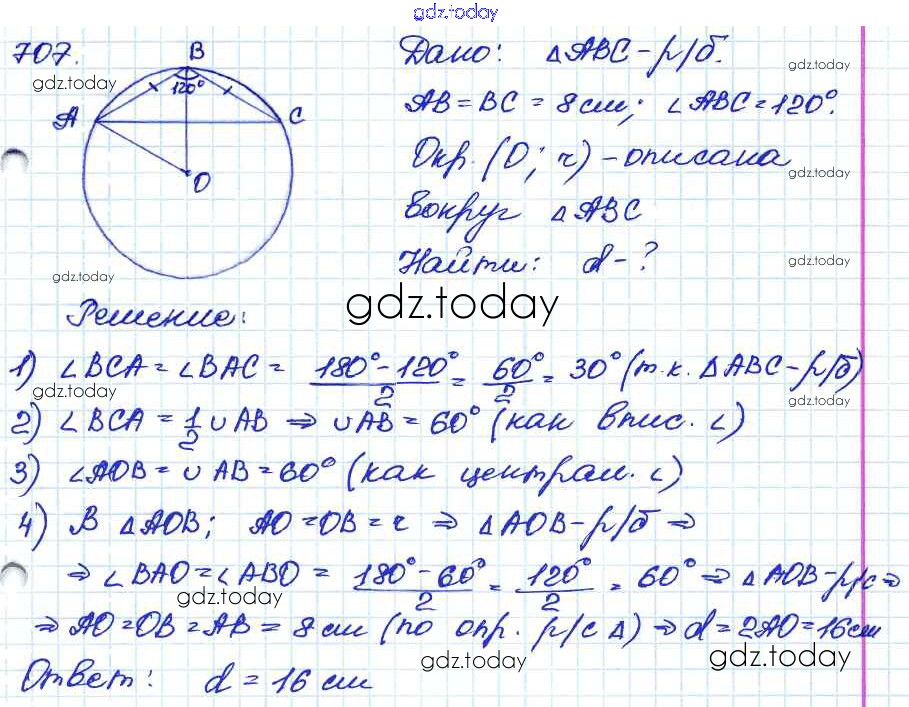 gdz.today
707.
B
120°
A
C
O
Дано: △ABC – р/б.
AB = BC = 8 см; ∠ABC = 120°.
Окр. (O; r) – описана
вокруг △ABC
Найти: d – ?
gdz.today
gdz.today
gdz.today
gdz.today
gdz.today
gdz.today
Решение:
1) ∠BCA = ∠BAC = (180° – 120°)/2 = 60°/2 = 30° (т.к. △ABC – р/б)
gdz.today
gdz.today
2) ∠BCA = 1/2 ∪AB ⇒ ∪AB = 60° (как впис. ∠)
3) ∠AOB = ∪AB = 60° (как централ. ∠)
4) В △AOB; AO = OB = r ⇒ △AOB – р/б ⇒
⇒ ∠BAO = ∠ABO = (180° – 60°)/2 = 120°/2 = 60° ⇒ △AOB – р/с ⇒
gdz.today
gdz.today
⇒ AO = OB = AB = 8 см (по опр. р/с △) ⇒ d = 2AO = 16 см
gdz.today
gdz.today
Ответ: d = 16 см